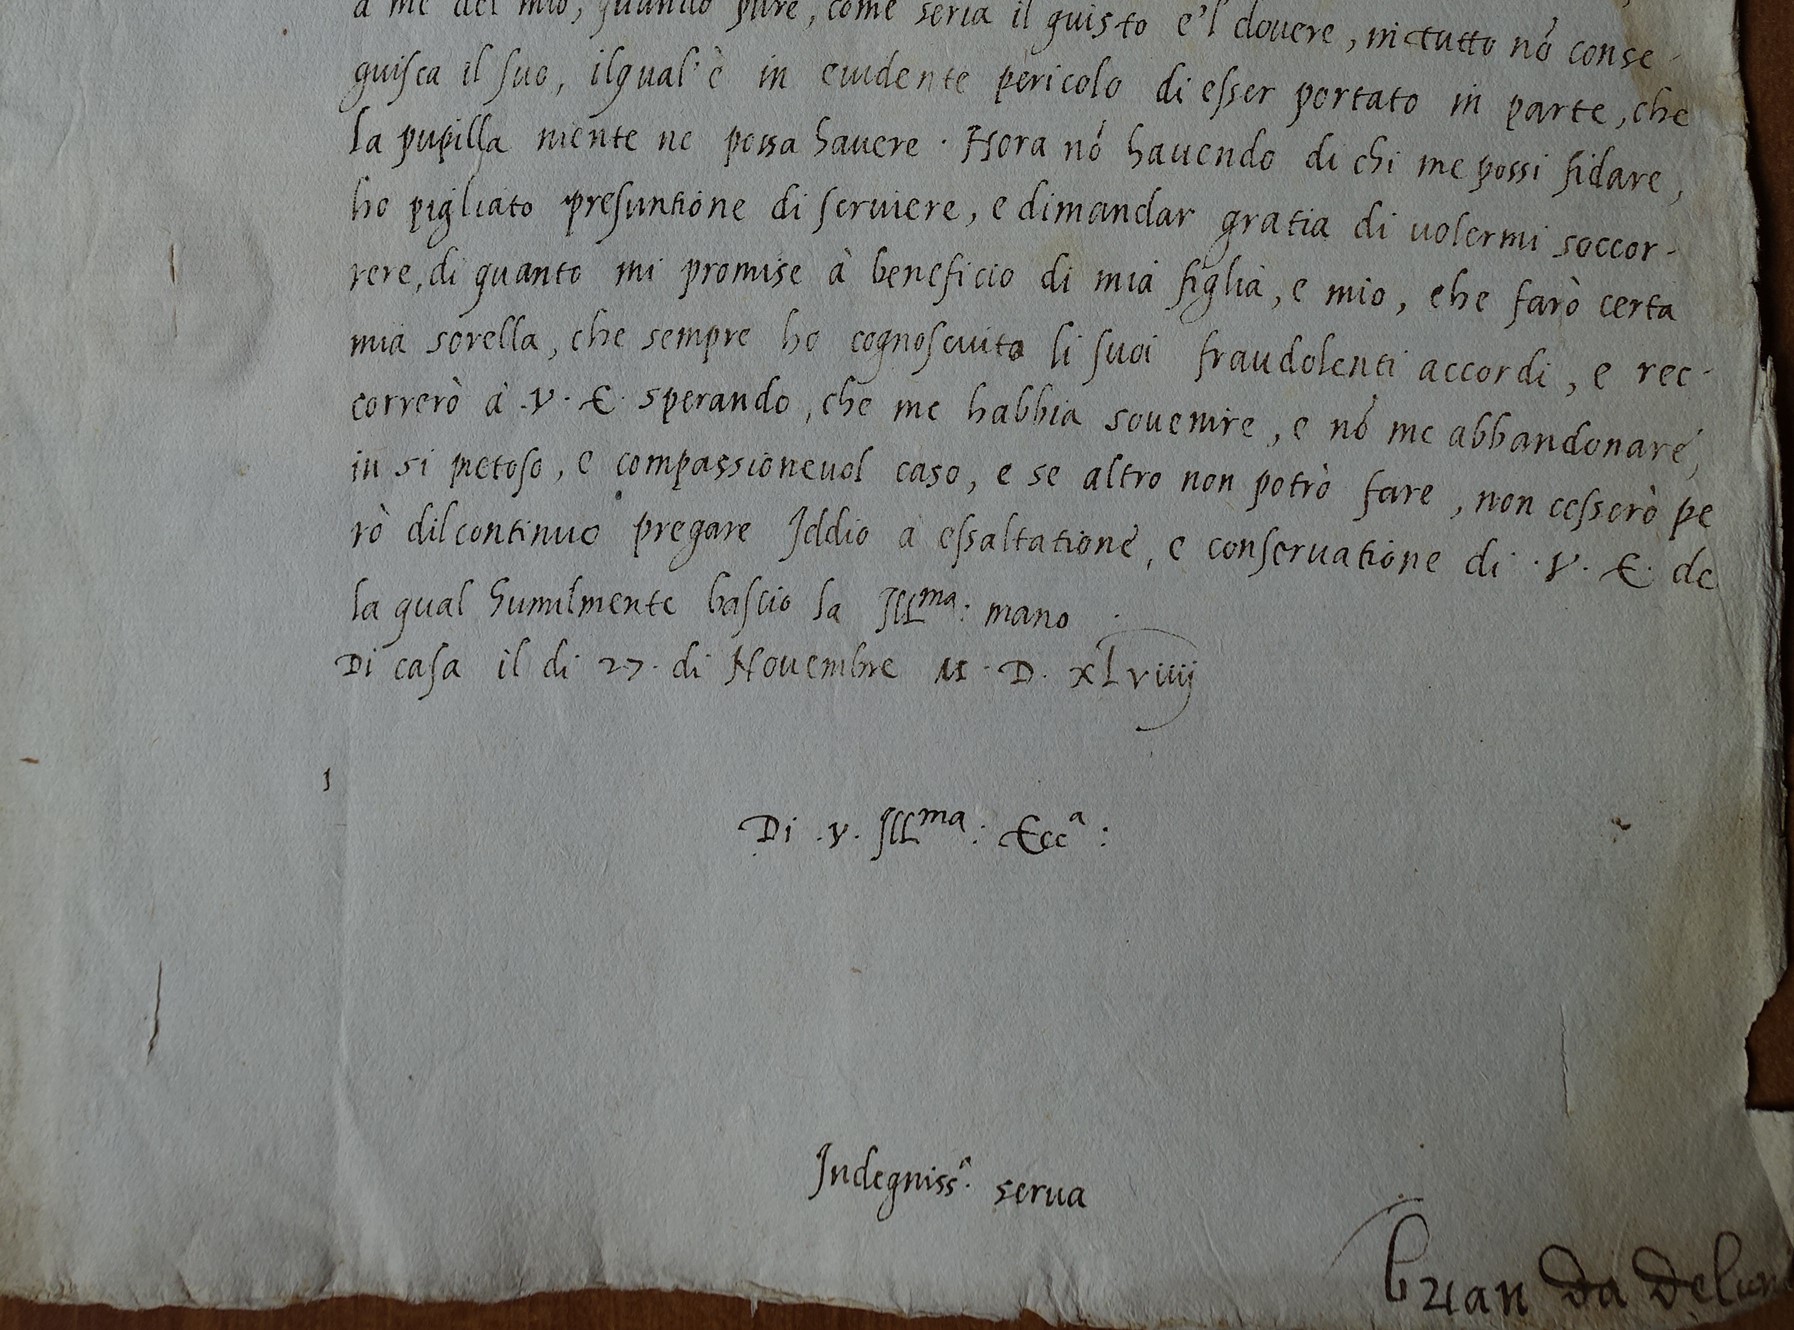 a me del mio, quando pure, come seria il guisto e'l douere, in tutto nó conse-
guisca il suo, ilqual'è in euidente pericolo di esser portato in parte, che
la pupilla niente ne possa hauere. Hora nó hauendo di chi me possi fidare,
ho pigliato presuntione di scriuere, e dimandar gratia di uolermi soccor-
rere, di quanto mi promise à beneficio di mia figlia, e mio, che farò certa
mia sorella, che sempre ho cognosciuto li suoi fraudolenti accordi, e rec-
correrò à .V. E. sperando, che me habbia souenire, e nó me abbandonare,
in si pietoso, e compassioneuol caso, e se altro non potrò fare, non cesserò pe
rò dil continuo pregare Iddio a essaltatione, e conseruatione di .V. E. de
la qual humilmente bascio la Ill^ma: mano.
Di casa il di 27. di Nouembre M. D. xlviiij
Di .V. Ill^ma: Ecc^a:
Indegniss^a. serua